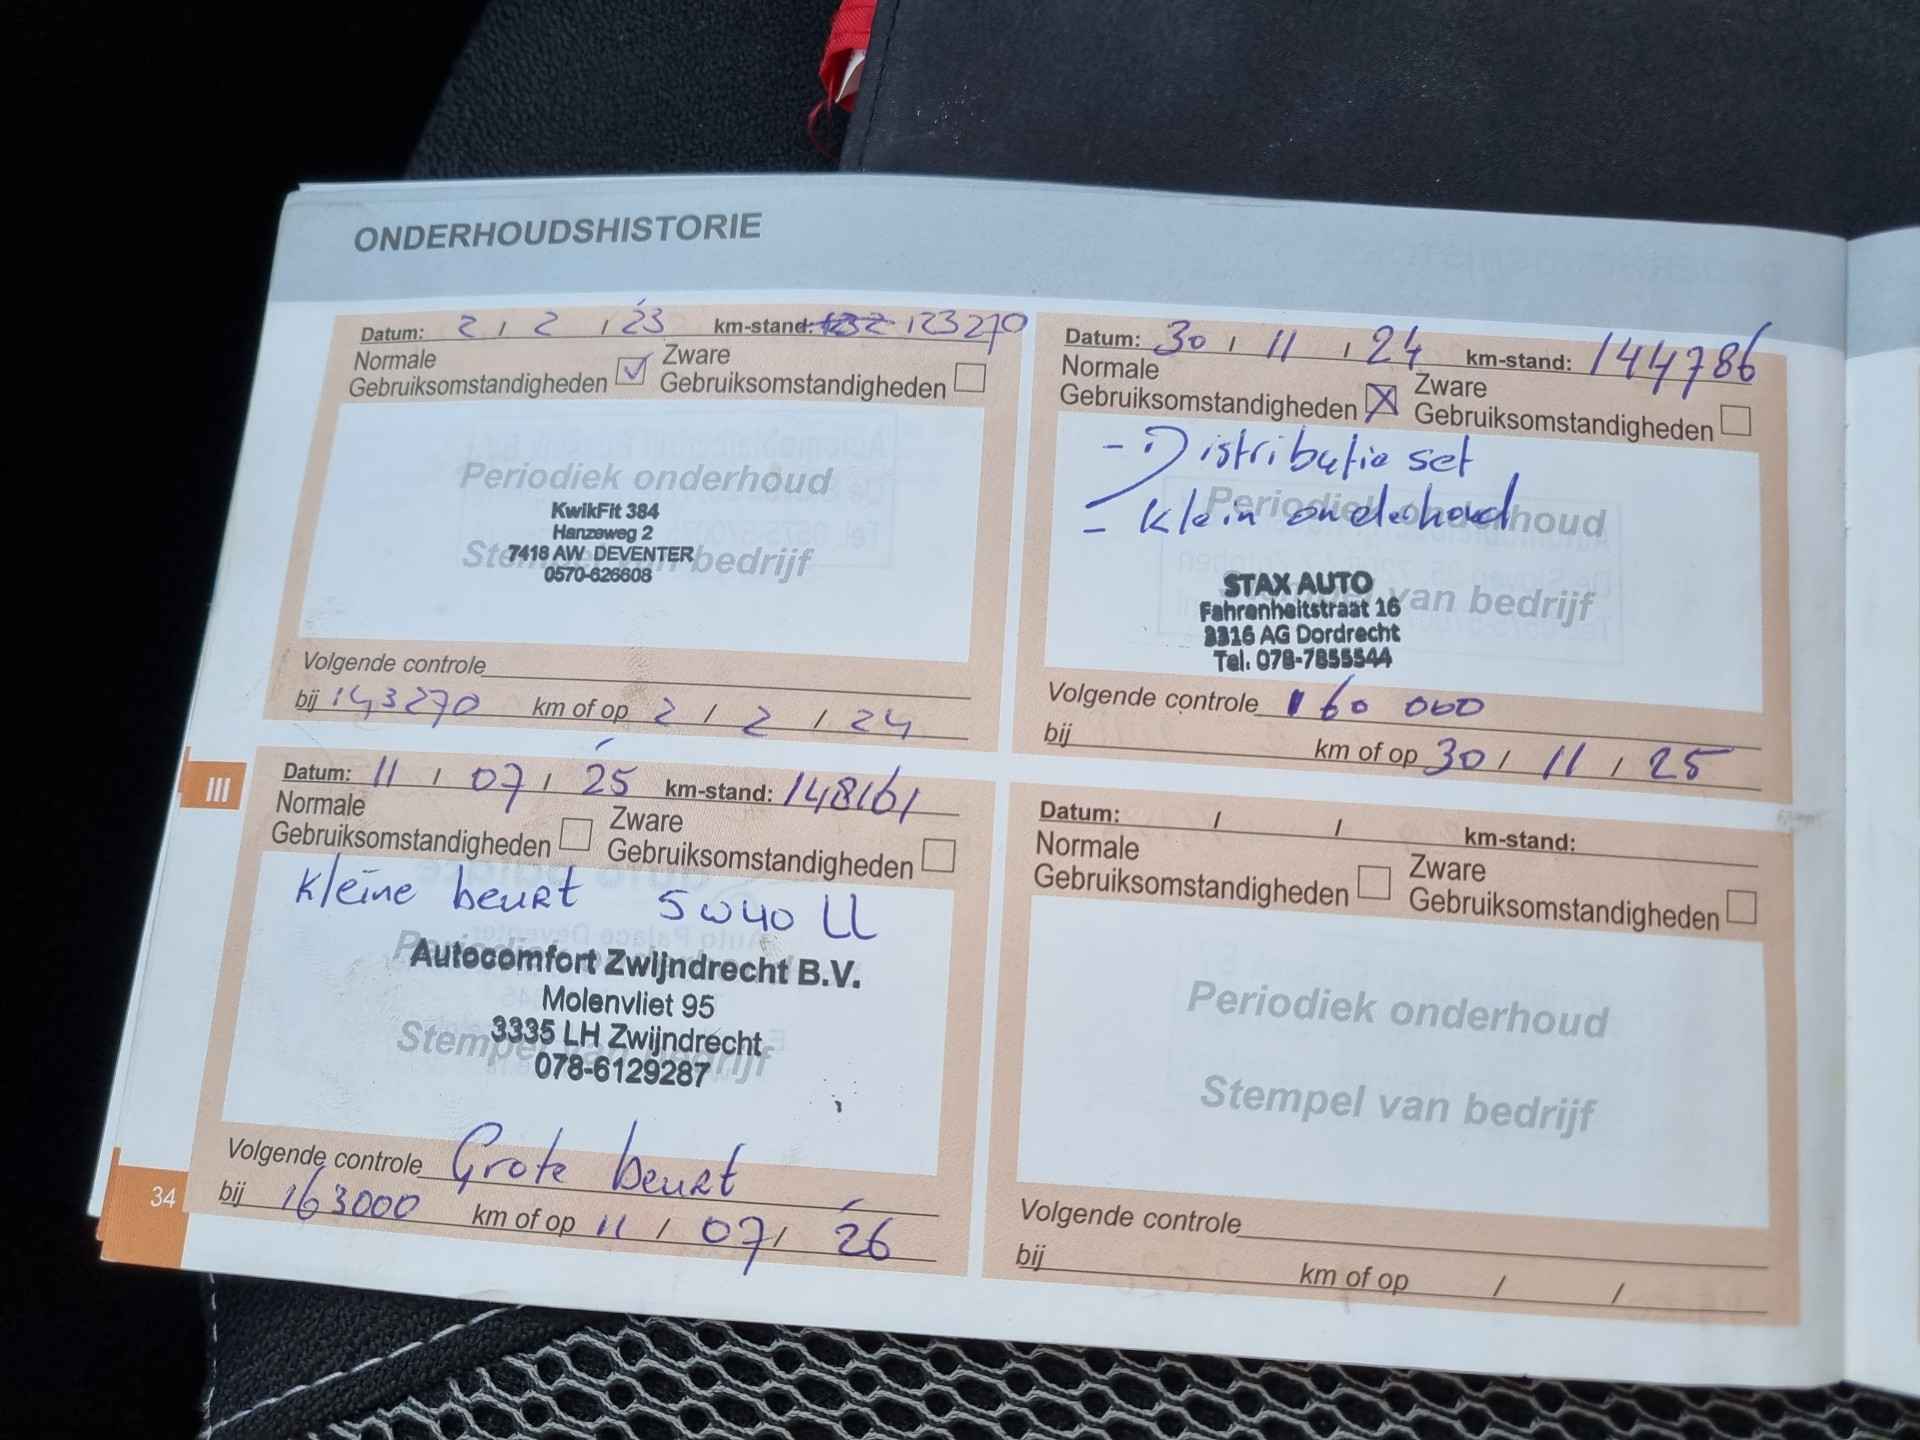 ONDERHOUDSHISTORIE
Datum: 2 / 2 / 23 km-stand: 123270
Normale Gebruiksomstandigheden Zware Gebruiksomstandigheden
Periodiek onderhoud
KwikFit 384
Hanzeweg 2
7418 AW DEVENTER
Stempel van bedrijf
0570-626608
Volgende controle
bij 143270 km of op 2 / 2 / 24
Datum: 30 / 11 / 24 km-stand: 144786
Normale Gebruiksomstandigheden Zware Gebruiksomstandigheden
- Distributie set
- Klein onderhoud
Periodiek onderhoud
STAX AUTO
Stempel van bedrijf
Fahrenheitstraat 16
3316 AG Dordrecht
Tel. 078-7855544
Volgende controle 160 000
bij km of op 30 / 11 / 25
III
Datum: 11 / 07 / 25 km-stand: 148161
Normale Gebruiksomstandigheden Zware Gebruiksomstandigheden
Kleine beurt 5W40 LL
Periodiek onderhoud
Autocomfort Zwijndrecht B.V.
Molenvliet 95
3335 LH Zwijndrecht
Stempel van bedrijf
078-6129287
Volgende controle Grote beurt
bij 163000 km of op 11 / 07 / 26
Datum: / / km-stand:
Normale Gebruiksomstandigheden Zware Gebruiksomstandigheden
Periodiek onderhoud
Stempel van bedrijf
Volgende controle
bij km of op / /
34